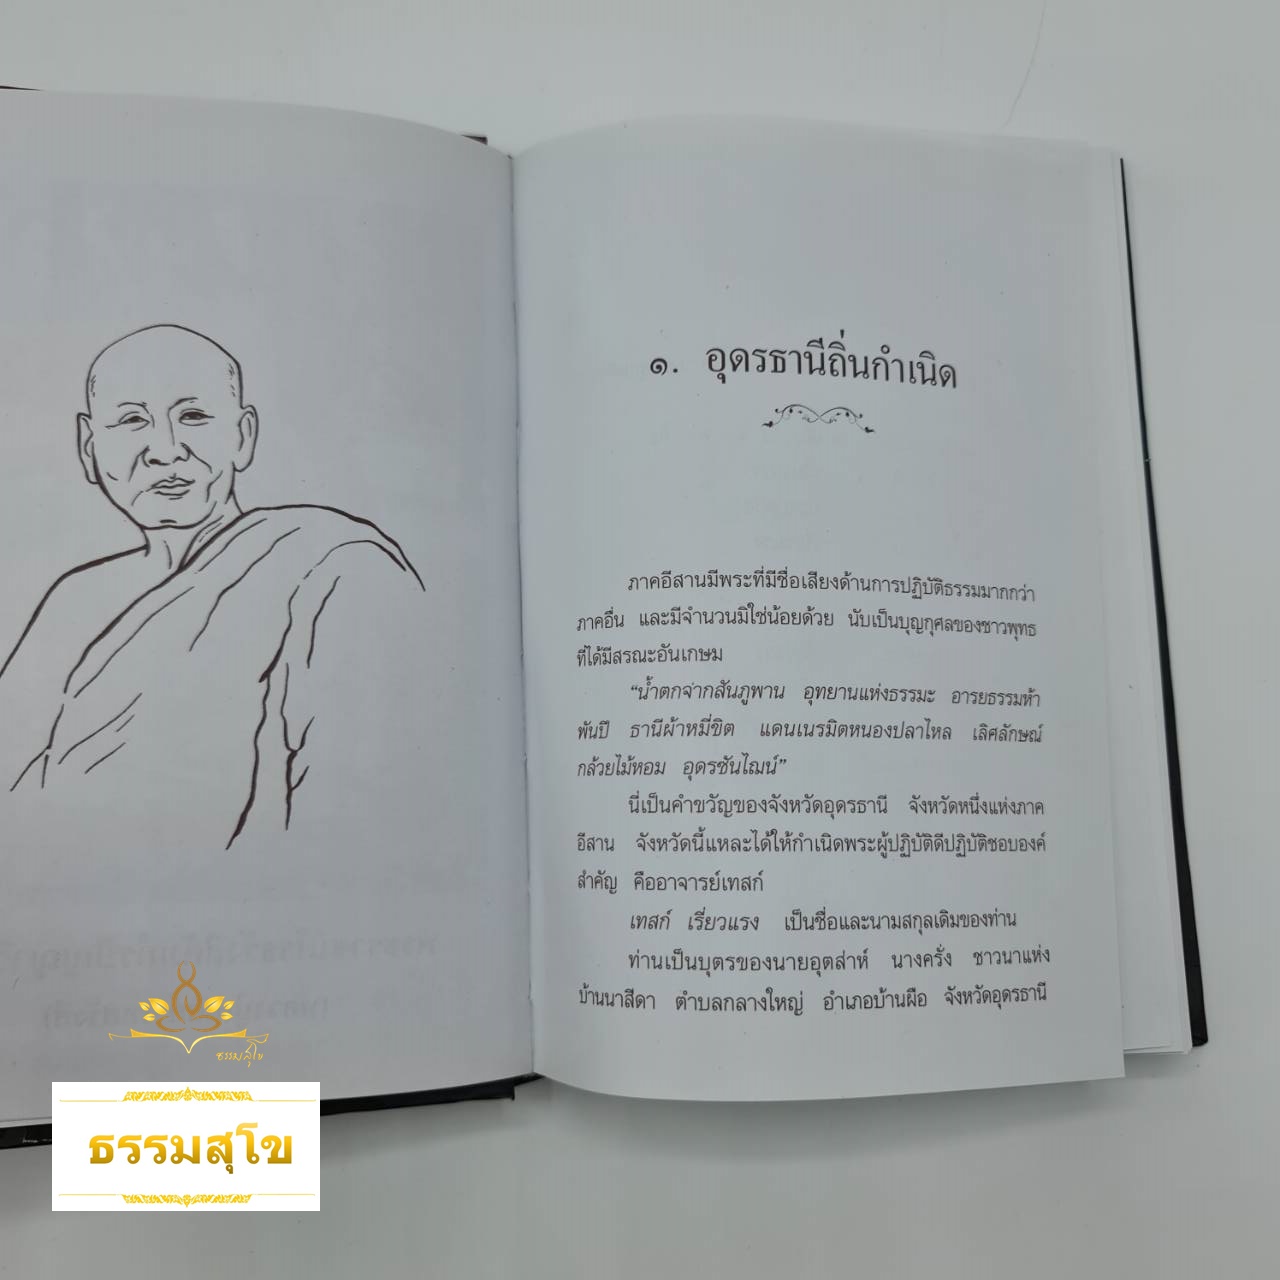 ๑. อุดรธานีถิ่นกำเนิด
ภาคอีสานมีพระที่มีชื่อเสียงด้านการปฏิบัติธรรมมากกว่า
ภาคอื่น และมีจำนวนมิใช่น้อยด้วย นับเป็นบุญกุศลของชาวพุทธ
ที่ได้มีสรณะอันเกษม
“น้ำตกจากสันภูพาน อุทยานแห่งธรรมะ อารยธรรมห้า
พันปี ธานีผ้าหมี่ขิต แดนเนรมิตหนองปลาไหล เลิศลักษณ์
กล้วยไม้หอม อุดรซันไฌน์”
นี่เป็นคำขวัญของจังหวัดอุดรธานี จังหวัดหนึ่งแห่งภาค
อีสาน จังหวัดนี้แหละได้ให้กำเนิดพระผู้ปฏิบัติดีปฏิบัติชอบองค์
สำคัญ คืออาจารย์เทสก์
เทสก์ เรี่ยวแรง เป็นชื่อและนามสกุลเดิมของท่าน
ท่านเป็นบุตรของนายอุตส่าห์ นางครั่ง ชาวนาแห่ง
บ้านนาสีดา ตำบลกลางใหญ่ อำเภอบ้านผือ จังหวัดอุดรธานี
ธรรมสุโข
ธรรมสุโข